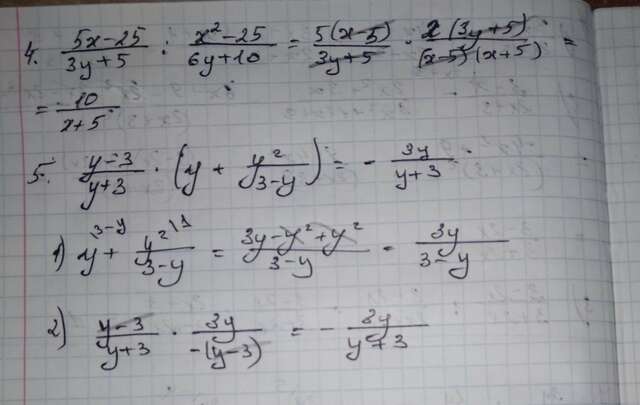 4. (5x-25)/(3y+5) : (x²-25)/(6y+10) = 5(x-5)/(3y+5) · 2(3y+5)/((x-5)(x+5)) =
= 10/(x+5)
5. (y-3)/(y+3) · (y + y²/(3-y)) = - 3y/(y+3)
1) y^(3-y) + y²^(\1)/(3-y) = (3y-y²+y²)/(3-y) = 3y/(3-y)
2) (y-3)/(y+3) · 3y/(-(y-3)) = - 3y/(y+3)